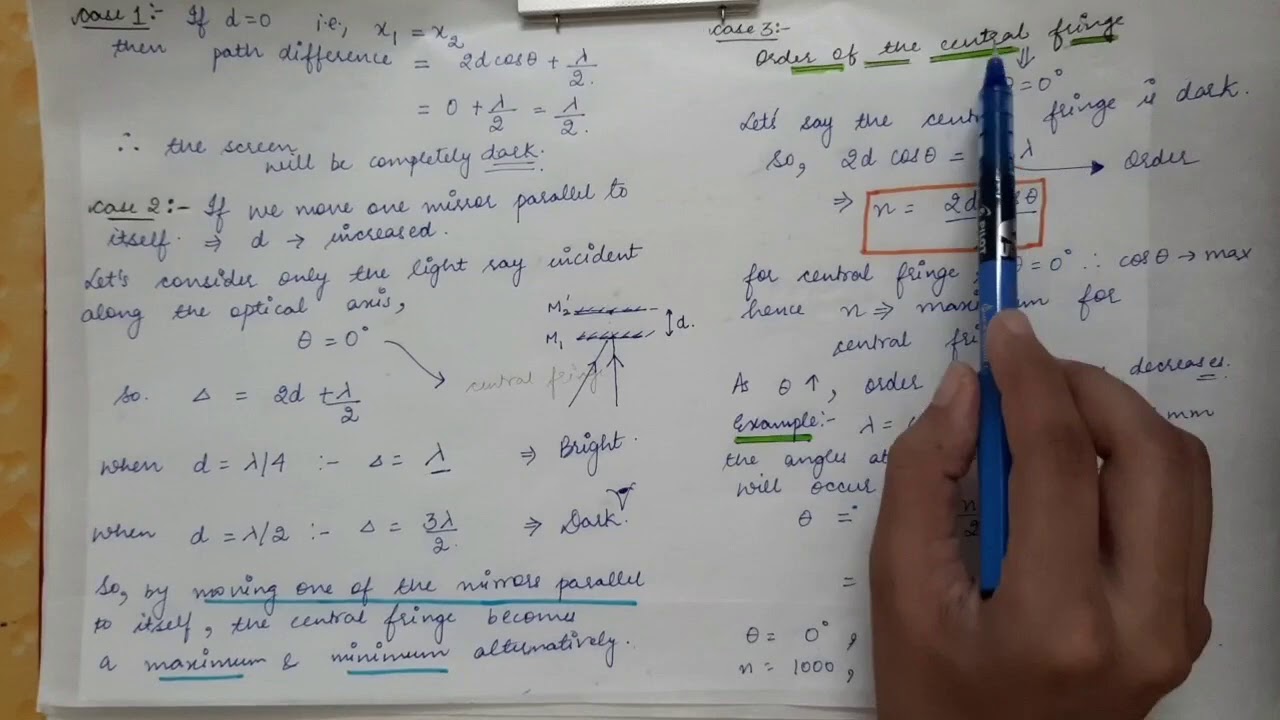 Case 1:- If d=0 i.e., x₁ = x₂
then path difference = 2d cosθ + λ/2.
= 0 + λ/2 = λ/2.
∴ the screen
will be completely dark.
Case 2:- If we move one mirror parallel to
itself. ⇒ d → increased.
Let's consider only the light say incident
along the optical axis,
θ = 0°
central fringe
M₂'
M₁
d.
So. Δ = 2d + λ/2
when d = λ/4 :- Δ = λ ⇒ Bright.
when d = λ/2 :- Δ = 3λ/2. ⇒ Dark.
So, by moving one of the mirrors parallel
to itself, the central fringe becomes
a maximum & minimum alternatively.
Case 3:-
Order of the central fringe
⇓
= 0°
Let's say the fringe is dark.
So, 2d cosθ = λ → Order
⇒ n =
for central fringe, θ = 0° ∴ cosθ → max
hence n ⇒ for
central
As θ ↑, order decreases.
Example:- λ = mm
the angles
will occur
θ =
=
θ = 0°,
n = 1000,
PILOT